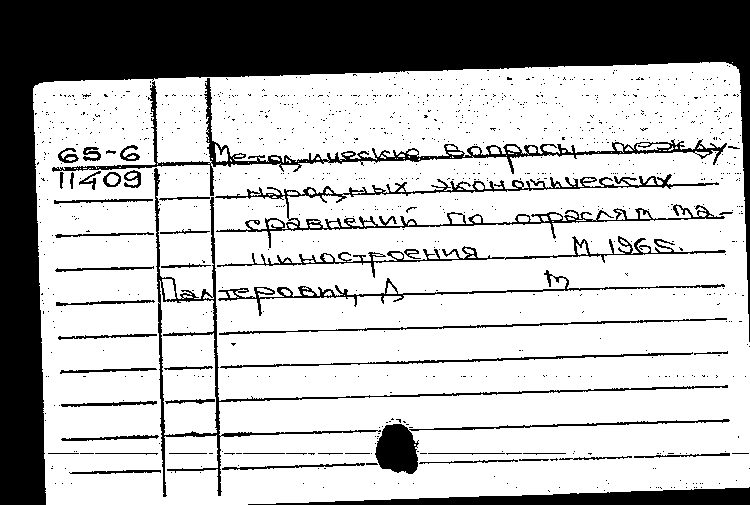 65-6 Методические вопросы между-
11409 народных экономических
сравнений по отраслям ма-
шиностроения М, 1965.
Палтерович, Д М